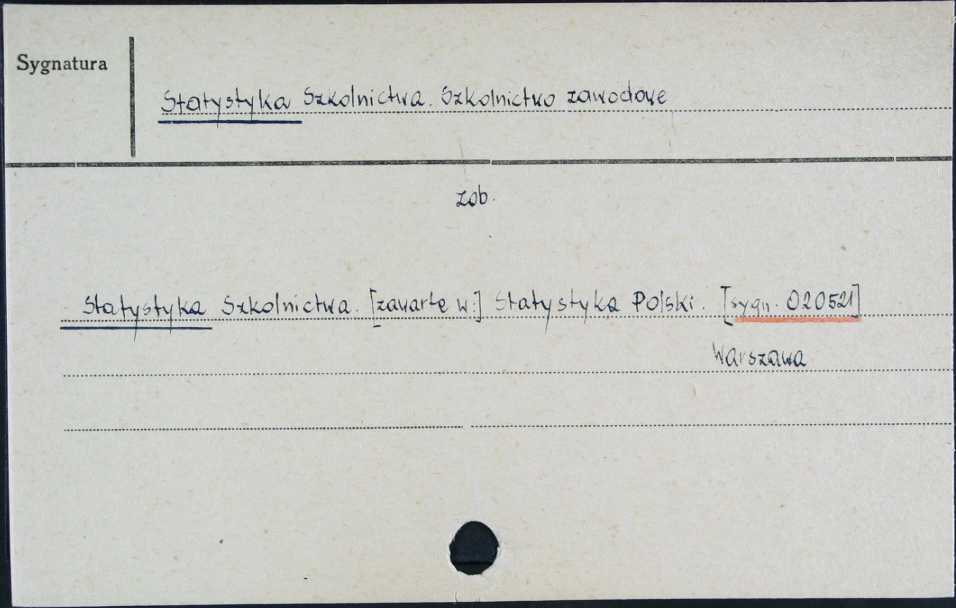 Sygnatura
Statystyka Szkolnictwa. Szkolnictwo zawodowe
zob.
Statystyka Szkolnictwa. [zawarte w:] Statystyka Polski. [sygn. 020521]
Warszawa